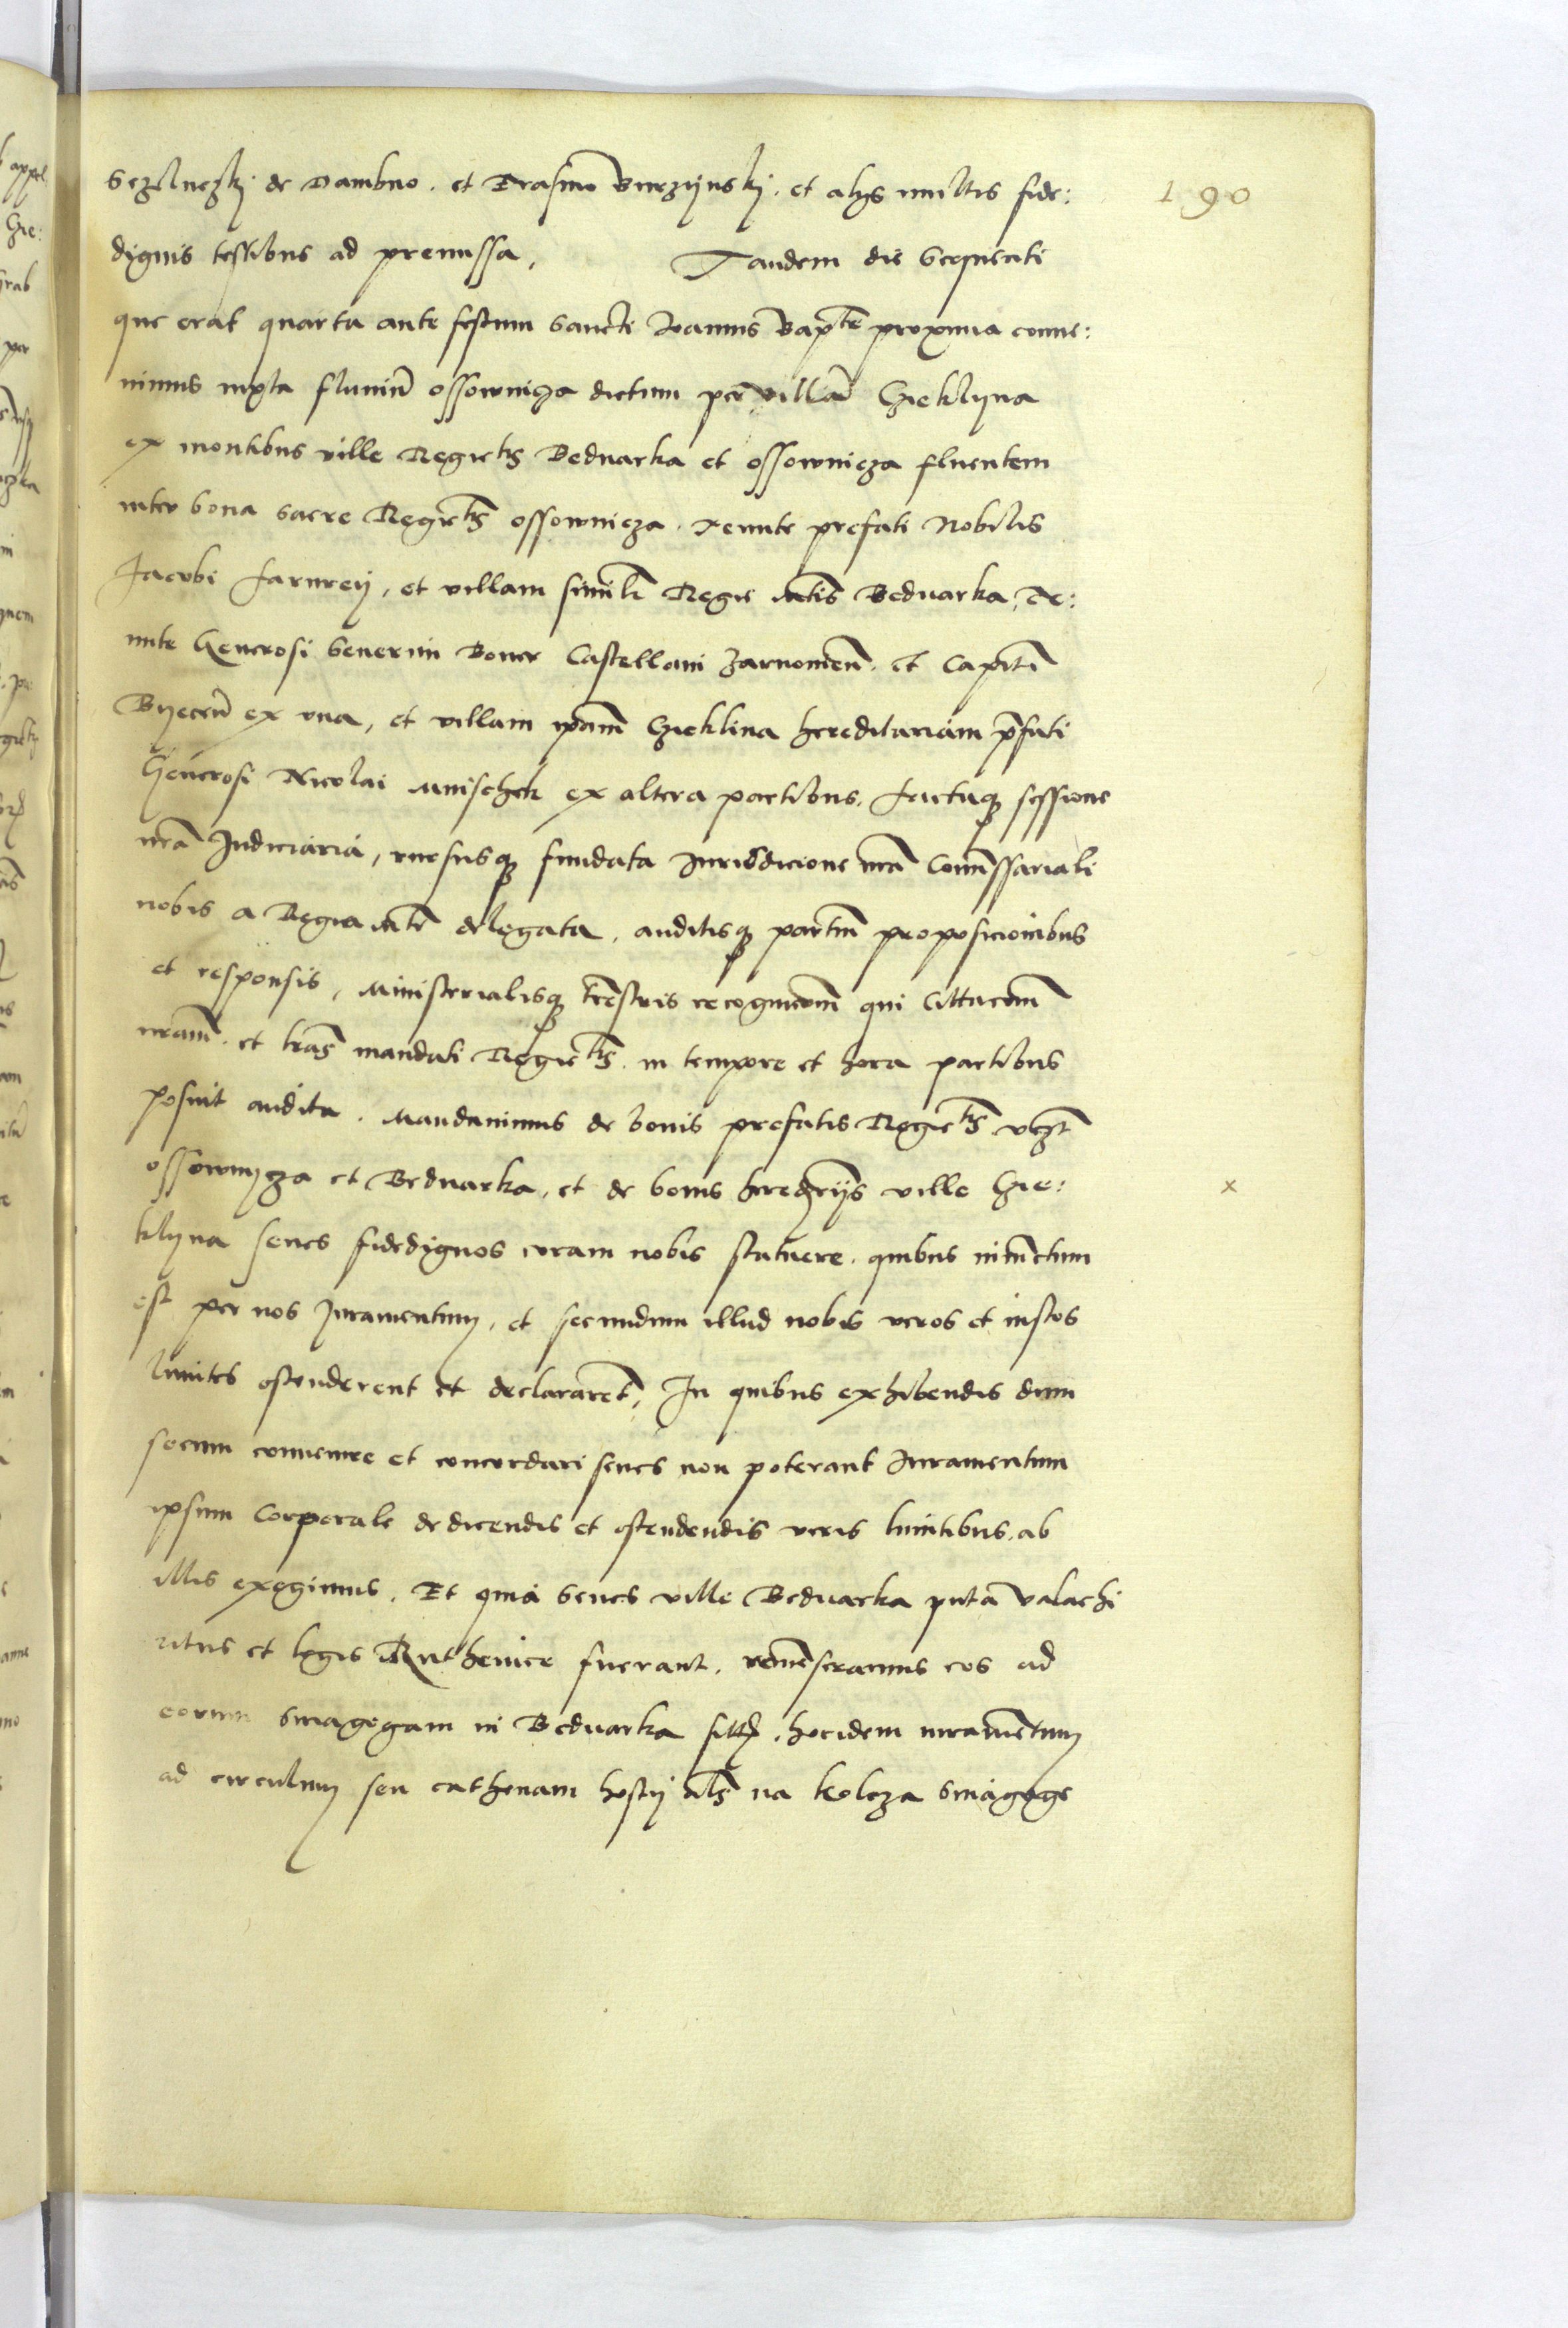 190
Sczeluczkj de Dambno. et Erasmo Buczÿnskj. et alÿs multis fide:
dignis testibus ad premissa, Tandem die Sequenti
que erat quarta ante festum Sancti Joannis Bapte proxima conue:
nimus iuxta fluuiũ ossownicza dictum per villã Czieklyna
ex montibus ville Regie mtis Bednarka et ossownicza fluentem
inter bona sacre Regie mtis ossownicza. tenute prefati Nobilis
Jacobi farurej, et villam similr Regie mtis Bednarka, te:
nute Generosi Seuerini Boner Castellani Zarnowieñ. et Capitñ
Byeceñ ex vna, et villam ipam Czieklina hereditariam pfati
Generosi Nicolai Mnischek ex altera partibus. factaq sessione
nra Judiciaria, rursusq fundata Jurisdicione nra Comissariali
nobis a Regia mte delegata, auditisq partiũ proposicionibus
et responsis, Ministerialisq trestris recognicom qui Cittacom
nram. et lras mandati Regie mtis. in tempore et hora partibus
posuit audita. Mandauimus de bonis prefatis Regie mtis vczt
ossownycza et Bednarka, et de bonis heredrijs ville Czie:
x
klyna senes fidedignos coram nobis statuere. quibus iniunctum
est per nos Juramentum, et secundum illud nobis veros et iustos
limites ostenderent et declararet, In quibus exhibendis dum
secum conuenire et concordari senes non poterant Juramentum
ipsum Corporale de dicendis et ostendendis veris limitibus, ab
illis exegimus. Et quia senes ville Bednarka puta Valachi
ritus et legis Ruthenice fuerant. remiseramus eos ad
eorum sinagogam in Bednarka sitã, hocidem iuramentum
ad circulum seu cathenam hostij als na kolcza sinagoge